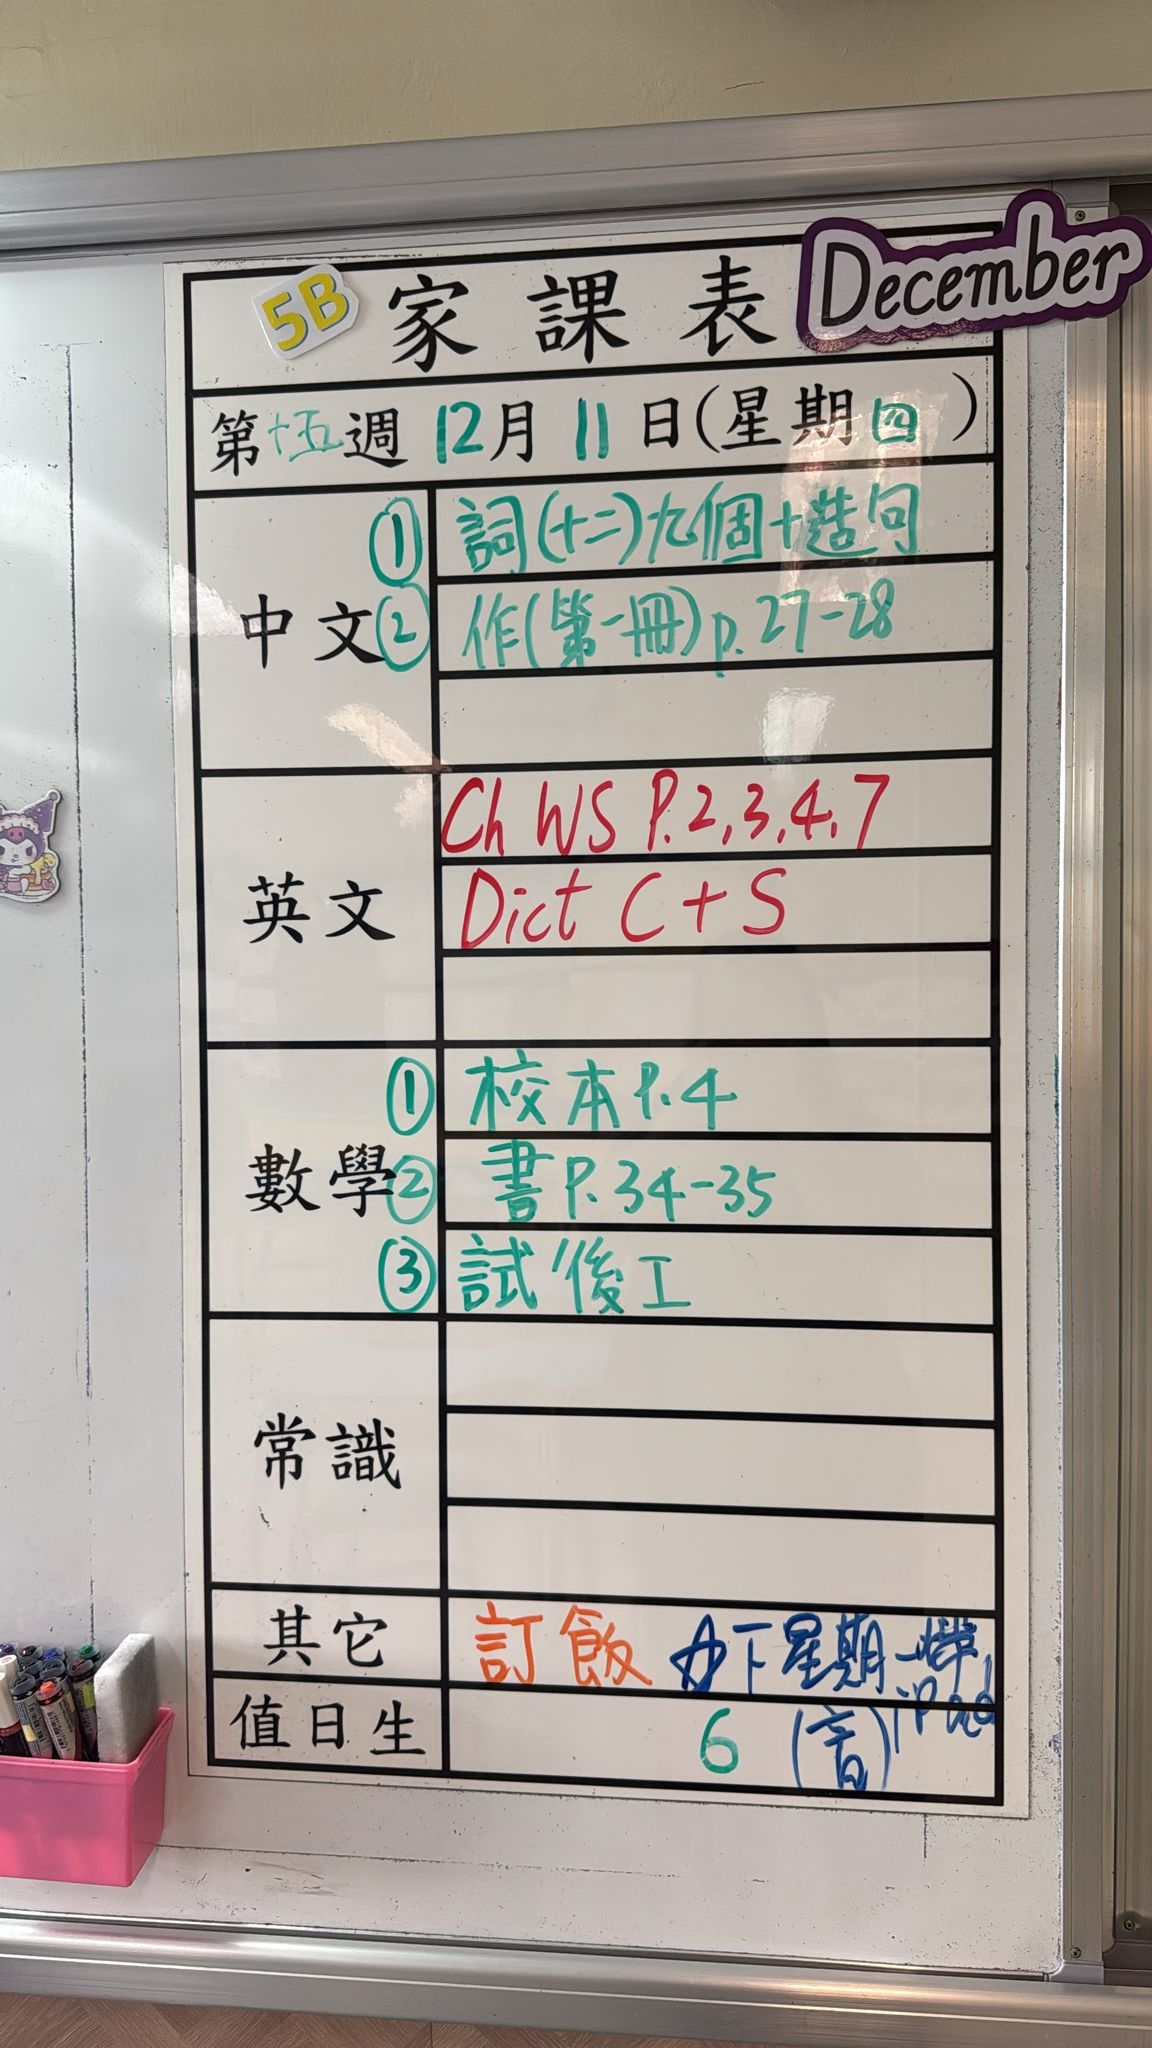 5B 家課表 December
第十五週 12月 11日(星期四)
中文
① 詞(十二)九個+造句
② 作(第一冊) p. 27-28
英文
Ch WS P.2,3,4,7
Dict C + S
數學
① 校本 P.4
② 書 P.34-35
③ 試後工
常識
其它 訂飯 下星期一帶 iPad (音)
值日生 6